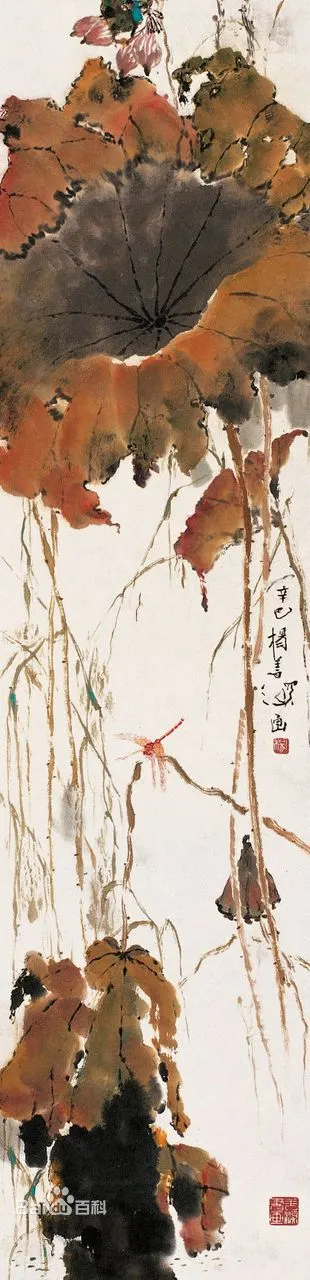 辛巳楊善深画
Baidu百科